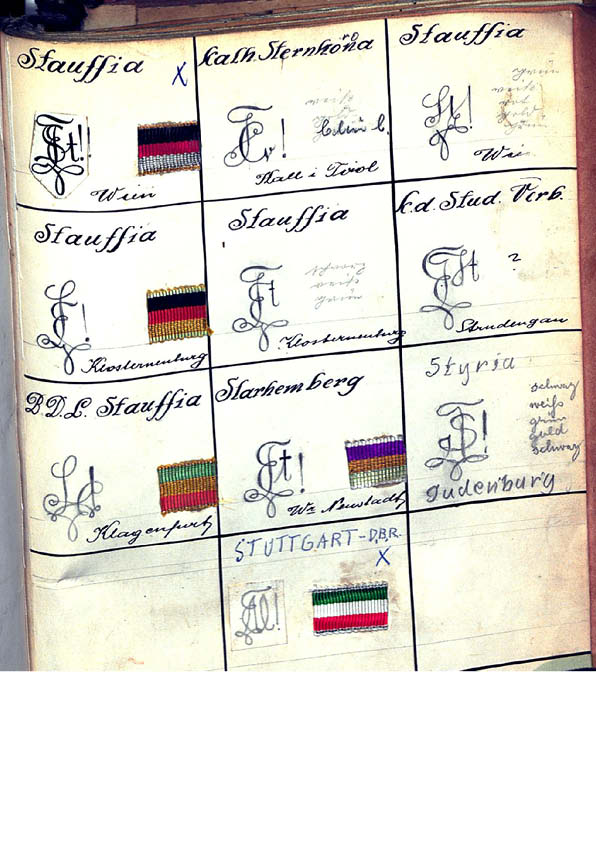 Stauffia
X
St!!
Wien
kath. Sternkorona
Hall i Tirol
Stauffia
St!
Stauffia
Klosterneuburg
Stauffia
Klosterneuburg
k.d. Stud. Verb.
?
Strudengau
B.D.L. Stauffia
Klagenfurt
Starhemberg
Wr. Neustadt
Styria
schwarz
weiß
grün
gold
schwarz
Judenburg
STUTTGART-D.B.R.
X
Al!